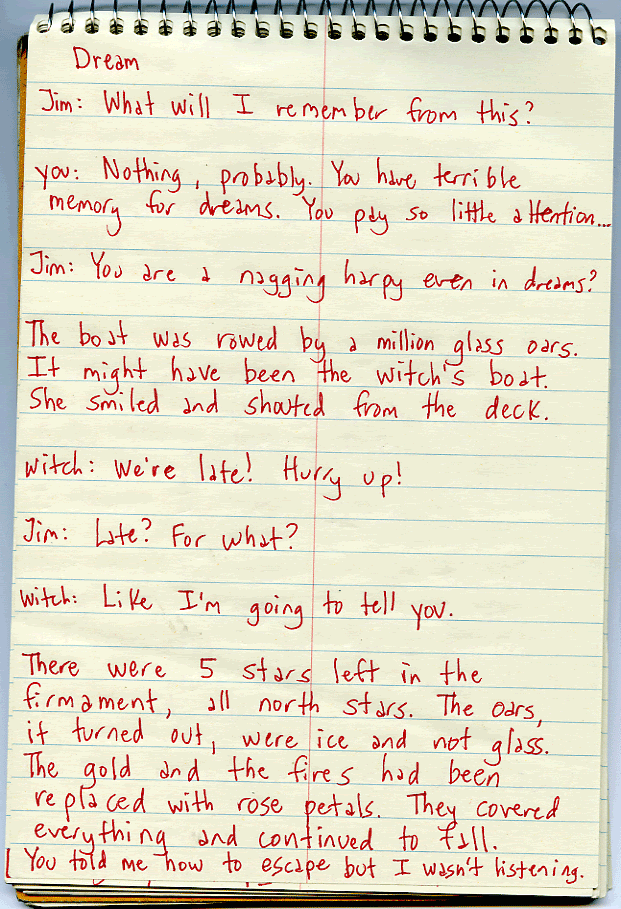 Dream
Jim: What will I remember from this?
you: Nothing, probably. You have terrible
memory for dreams. You pay so little attention...
Jim: You are a nagging harpy even in dreams?
The boat was rowed by a million glass oars.
It might have been the witch's boat.
She smiled and shouted from the deck.
witch: We're late! Hurry up!
Jim: Late? For what?
witch: Like I'm going to tell you.
There were 5 stars left in the
firmament, all north stars. The oars,
it turned out, were ice and not glass.
The gold and the fires had been
replaced with rose petals. They covered
everything and continued to fall.
You told me how to escape but I wasn't listening.